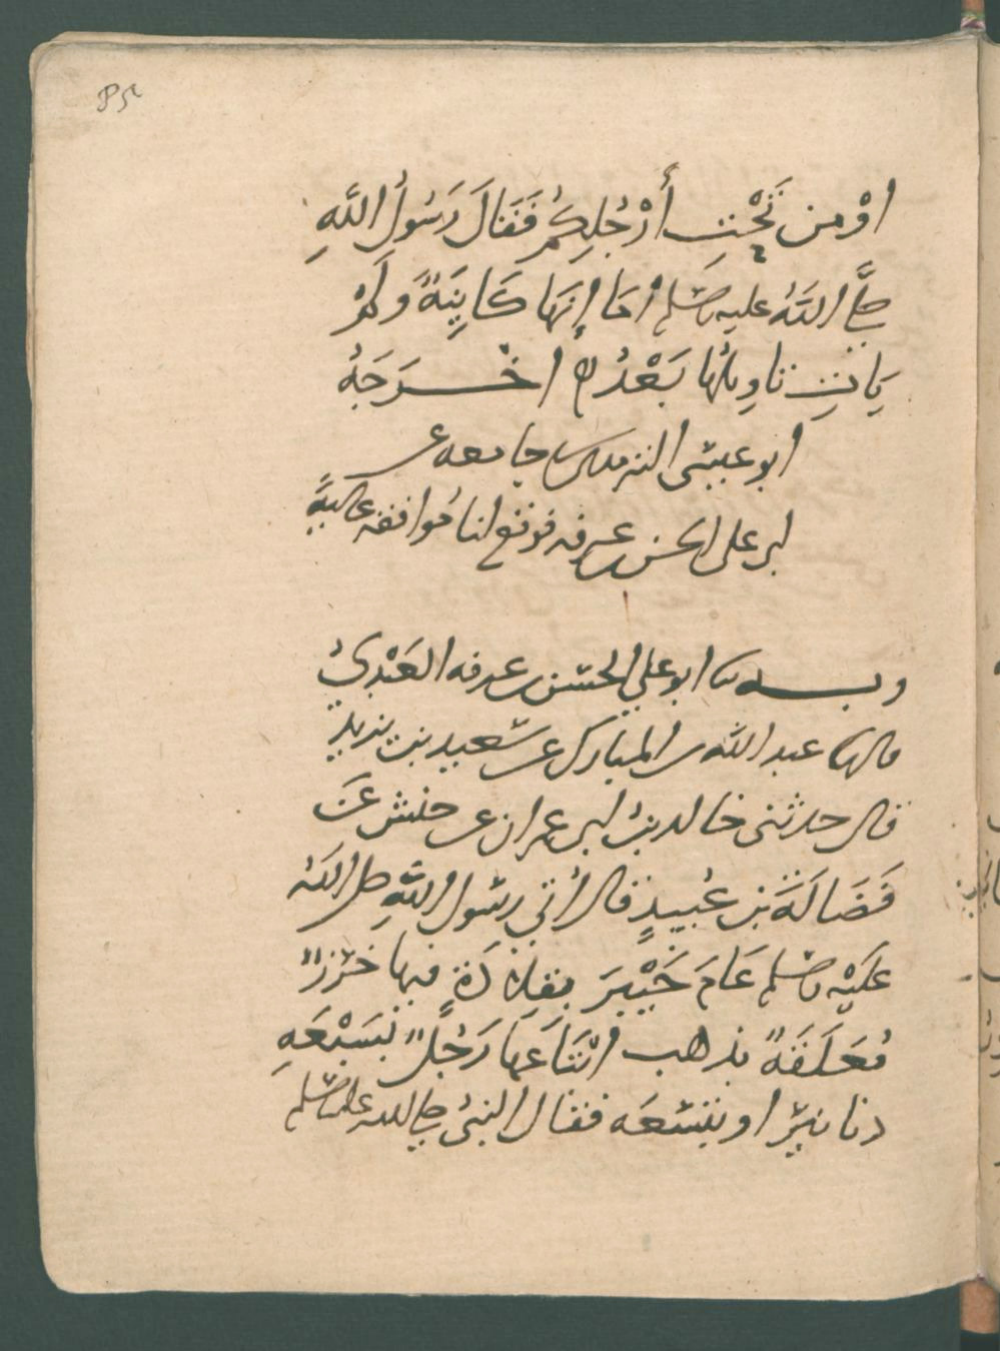 اوْ من تَحْتِ أَرْجُلِكُم فَقَالَ رَسُولُ اللَّهِ
صلَّى اللَّهُ عليه وسَلم أمَا إنَهَا كَايِنَةٌ وَلَمْ
يَاتِ تاوِيلُهَا بَعْدُ ه اخْــرَجَهُ
ابو عيسى الترمذى جامعه عــ
ابى على الحسن عرفه فوقع لنا مُوافقه عاليةً
وبــه ابو علي الحسَن بن عرفه العَبْدِيُ
قال عبد الله بن المبارك عن سَعيد بن يزيد
قال حدثنى خالد بنُ ابى عمران عن حنش عَن
فَضَالَةَ بْنِ عُبيدٍ قال أُتي رسُول اللَّهِ صلى اللَّهُ
عَلَيْه وسَلم عَامَ خَيْبَرَ بقِلادَةٍ فيها خرَزٌ
مُعَلَقَةٌ بذهب ابْتَاعَها رَجُلٌ بسَبْعَهِ
دنانير او بتسْعَه فقال النبيُ صلى الله عليه وسَلم